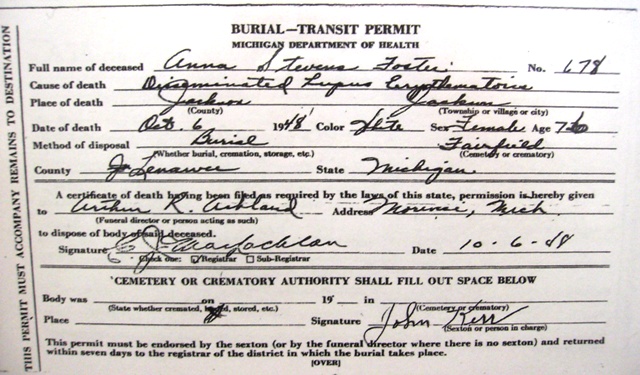 BURIAL—TRANSIT PERMIT
MICHIGAN DEPARTMENT OF HEALTH
Full name of deceased Anna Stevens Foster No. 678
Cause of death Disseminated Lupus Erythematosis
Place of death Jackson Jackson
(County) (Township or village or city)
Date of death Oct. 6 1948 Color White Sex Female Age
Method of disposal Burial Fairfield
(Whether burial, cremation, storage, etc.) (Cemetery or crematory)
County Lenawee State Michigan
A certificate of death having been filed as required by the laws of this state, permission is hereby given
to Arthur R. Ackland Address Morenci, Mich
(Funeral director or person acting as such)
to dispose of body of said deceased.
Signature C J MacLachlan Date 10-6-48
Check one: Registrar Sub-Registrar
CEMETERY OR CREMATORY AUTHORITY SHALL FILL OUT SPACE BELOW
Body was on 19 in
(State whether cremated, buried, stored, etc.) (Cemetery or crematory)
Place Signature John Kerr
(Sexton or person in charge)
This permit must be endorsed by the sexton (or by the funeral director where there is no sexton) and returned
within seven days to the registrar of the district in which the burial takes place.
(OVER)
THIS PERMIT MUST ACCOMPANY REMAINS TO DESTINATION